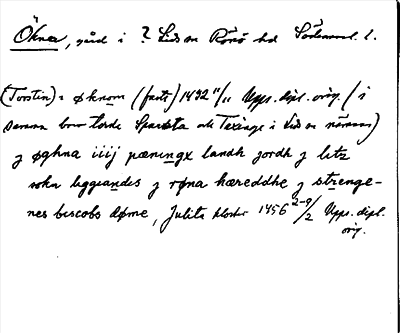 Öknar, gård i ? Lids sn Rönö hd Södermanl. l.
(Torstin) i øknom (fasti) 1492 11/11 Upps. dipl. orig. (i
samma brev Sparsta och Taxinge i Lids sn nämnas)
j øghna iiij pæningx landh jordh j litz
sokn liggiandes j røna hæreddhe j strenge-
nes biscobs døme, Julita kloster 1456 2-9/2 Upps. dipl.
orig.